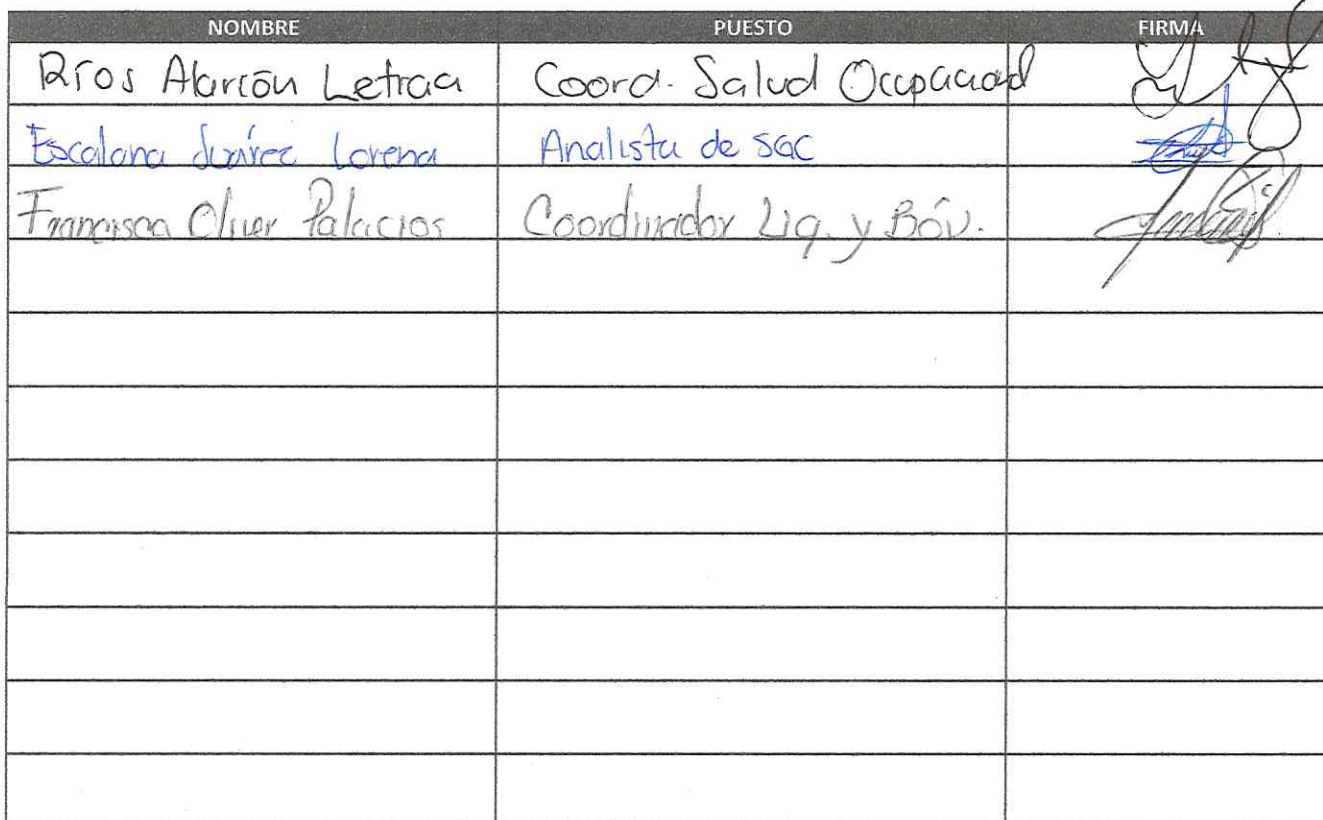 NOMBRE PUESTO FIRMA
Ríos Alarcón Leticia Coord. Salud Ocupacional
Escalona Juárez Lorena Analista de SGC
Francisca Oliver Palacios Coordinador Liq. y Bóv.